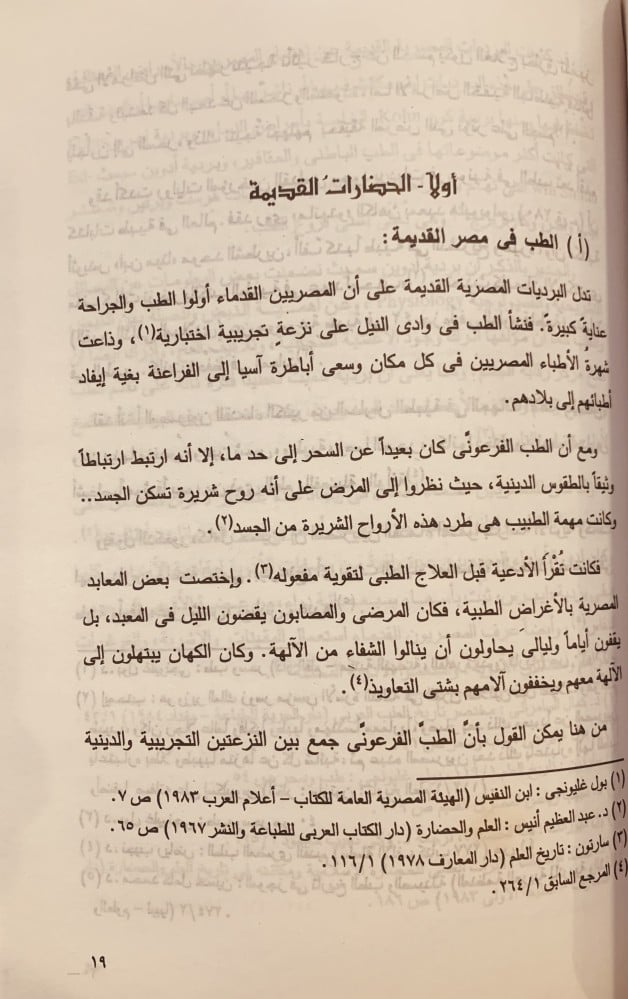 أولا - الحضارات القديمة
(أ) الطب فى مصر القديمة :
تدل البرديات المصرية القديمة على أن المصريين القدماء أولوا الطب والجراحة
عنايةً كبيرةً. فنشأ الطب فى وادى النيل على نزعةٍ تجريبية اختبارية(١)، وذاعت
شهرةُ الأطباء المصريين فى كل مكان وسعى أباطرة آسيا إلى الفراعنة بغية إيفاد
أطبائهم إلى بلادهم.
ومع أن الطب الفرعونًى كان بعيداً عن السحر إلى حد ما، إلا أنه ارتبط ارتباطاً
وثيقاً بالطقوس الدينية، حيث نظروا إلى المرض على أنه روح شريرة تسكن الجسد..
وكانت مهمة الطبيب هى طرد هذه الأرواح الشريرة من الجسد(٢).
فكانت تُقْرَأ الأدعية قبل العلاج الطبى لتقوية مفعوله(٣). وإختصت بعض المعابد
المصرية بالأغراض الطبية، فكان المرضى والمصابون يقضون الليل فى المعبد، بل
يقفون أياماً وليالىَ يحاولون أن ينالوا الشفاء من الآلهة. وكان الكهان يبتهلون إلى
الآلهة معهم ويخففون آلامهم بشتى التعاويذ(٤).
من هنا يمكن القول بأنَّ الطبَّ الفرعونًى جمع بين النزعتين التجريبية والدينية
(١) بول غليونجى : ابن النفيس (الهيئة المصرية العامة للكتاب - أعلام العرب ١٩٨٣) ص ٧.
(٢) د. عبد العظيم أنيس : العلم والحضارة (دار الكتاب العربى للطباعة والنشر ١٩٦٧) ص ٦٥.
(٣) سارتون : تاريخ العلم (دار المعارف ١٩٧٨) ١/ ١١٦.
(٤) المرجع السابق ١/ ٢٦٤.
١٩